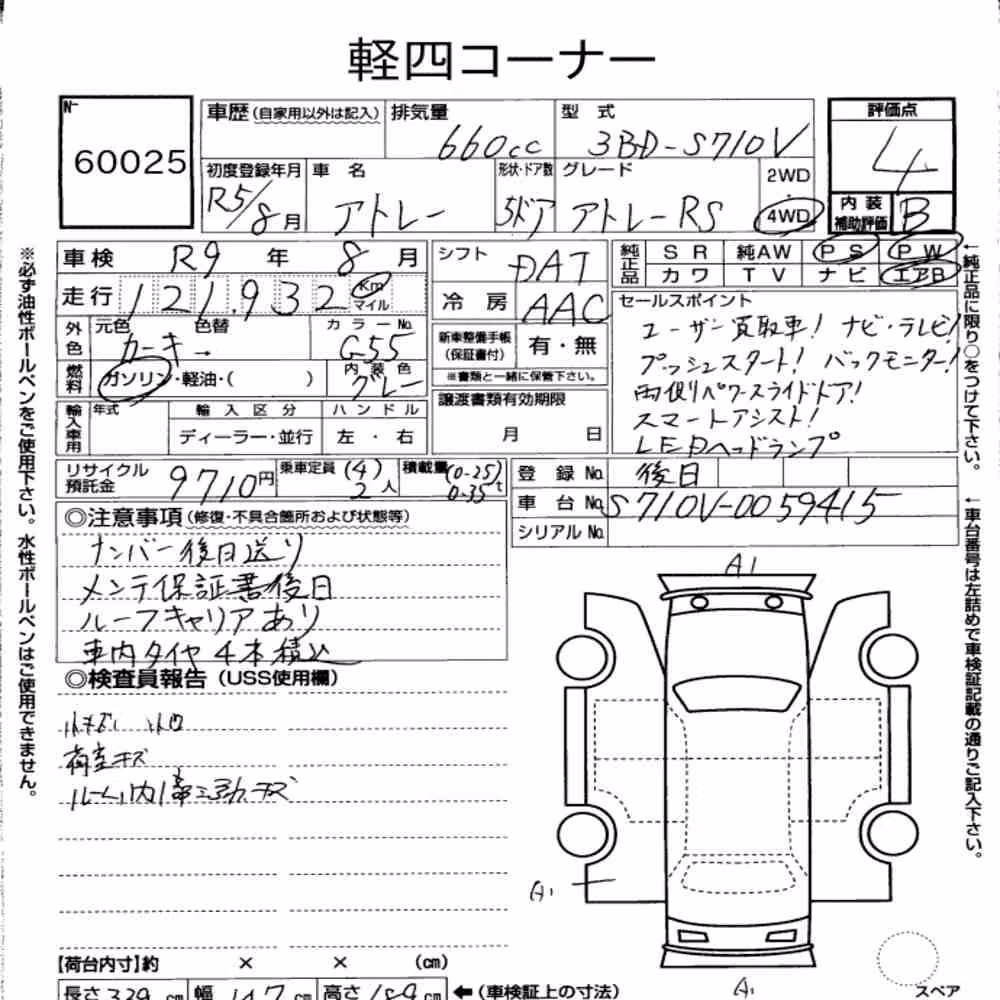 軽四コーナー
№ 60025
車歴(自家用以外は記入) 排気量 660cc 型式 3BD-S710V 評価点 4
初度登録年月 R5/8月 車名 アトレー 形状・ドア数 5ドア グレード アトレーRS 2WD・4WD 内装補助評価 B
車検 R9年 8月 シフト DAT 純正品 SR 純AW PS PW
走行 121,932 Km マイル 冷房 AAC カワ TV ナビ エアB
外色 元色 カーキ 色替 → カラーNo. G55 新車整備手帳(保証書付) 有・無
※書類と一緒に保管下さい。
燃料 ガソリン・軽油・( ) 内装色 グレー
譲渡書類有効期限 月 日
輸入車用 年式 輸入区分 ハンドル
ディーラー・並行 左・右
セールスポイント
ユーザー買取車! ナビ・テレビ!
プッシュスタート! バックモニター!
両側パワースライドドア!
スマートアシスト!
LEDヘッドランプ
リサイクル預託金 9710円 乗車定員 (4) 2人 積載量 (0-25) 0-35t
登録No. 後日
車台No. S710V-0059415
シリアルNo.
◎注意事項(修復・不具合箇所および状態等)
ナンバー後日送り
メンテ保証書後日
ルーフキャリアあり
車内タイヤ4本積込
◎検査員報告(USS使用欄)
荷室キズ
A1
A1
A1
【荷台内寸】約 × × (cm)
長さ 339 cm 幅 147 cm 高さ 189 cm ←(車検証上の寸法)
スペア
※必ず油性ボールペンをご使用下さい。水性ボールペンはご使用できません。
←純正品に限り○をつけて下さい。
←車台番号は左詰めで車検証記載の通りご記入下さい。